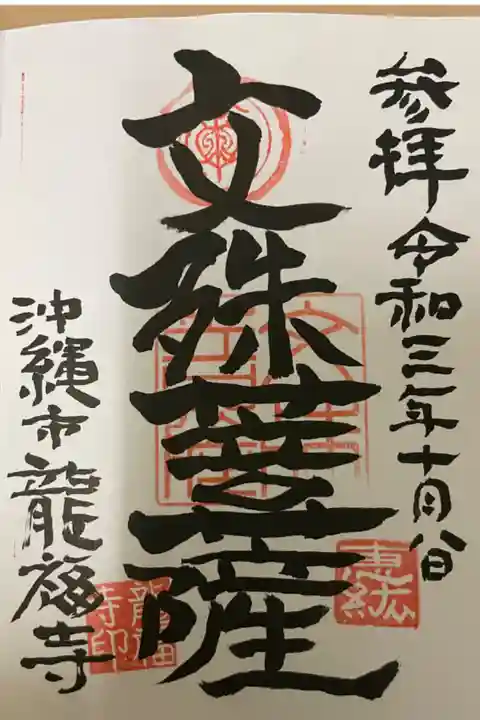 参拝令和三年十月八日
文殊菩薩
沖縄市龍福寺
龍福寺印